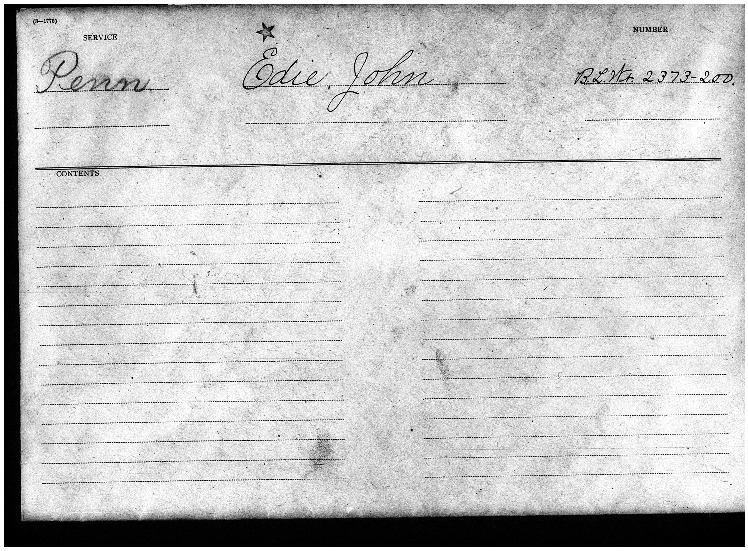 (3—1770)
SERVICE
NUMBER
Penn
Edie, John
B.L.Wt. 2373-200.
CONTENTS